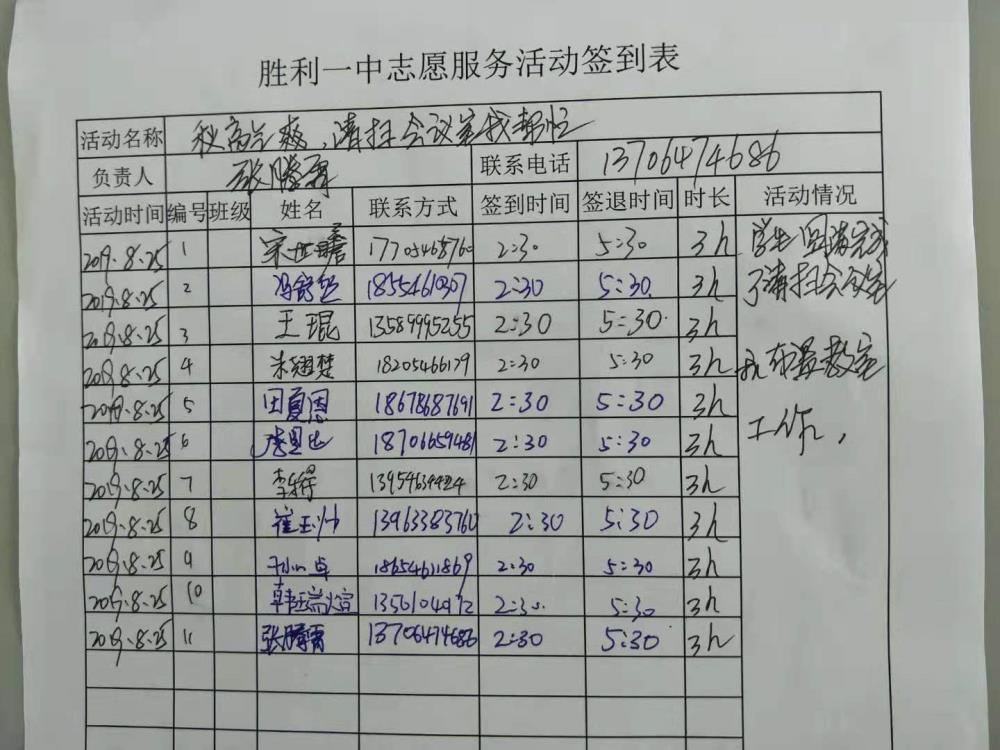 胜利一中志愿服务活动签到表
活动名称 秋高气爽,清扫会议室我帮忙
负责人 张腾霄 联系电话 13706474686
活动时间 编号 班级 姓名 联系方式 签到时间 签退时间 时长 活动情况
2019.8.25 1 2:30 5:30 3h
2019.8.25 2 18554610307 2:30 5:30 3h 了清扫会议室
2019.8.25 3 王琨 13589995255 2:30 5:30 3h
2019.8.25 4 朱耀楚 18205466179 2:30 5:30 3h 和布置教室
2019.8.25 5 田夏恩 18678687691 2:30 5:30 3h 工作,
2019.8.25 6 18706659481 2:30 5:30 3h
2019.8.25 7 2:30 5:30 3h
2019.8.25 8 13963383760 2:30 5:30 3h
2019.8.25 9 孙小卓 18654611869 2:30 5:30 3h
2019.8.25 10 2:30 5:30 3h
2019.8.25 11 张腾霄 13706474686 2:30 5:30 3h